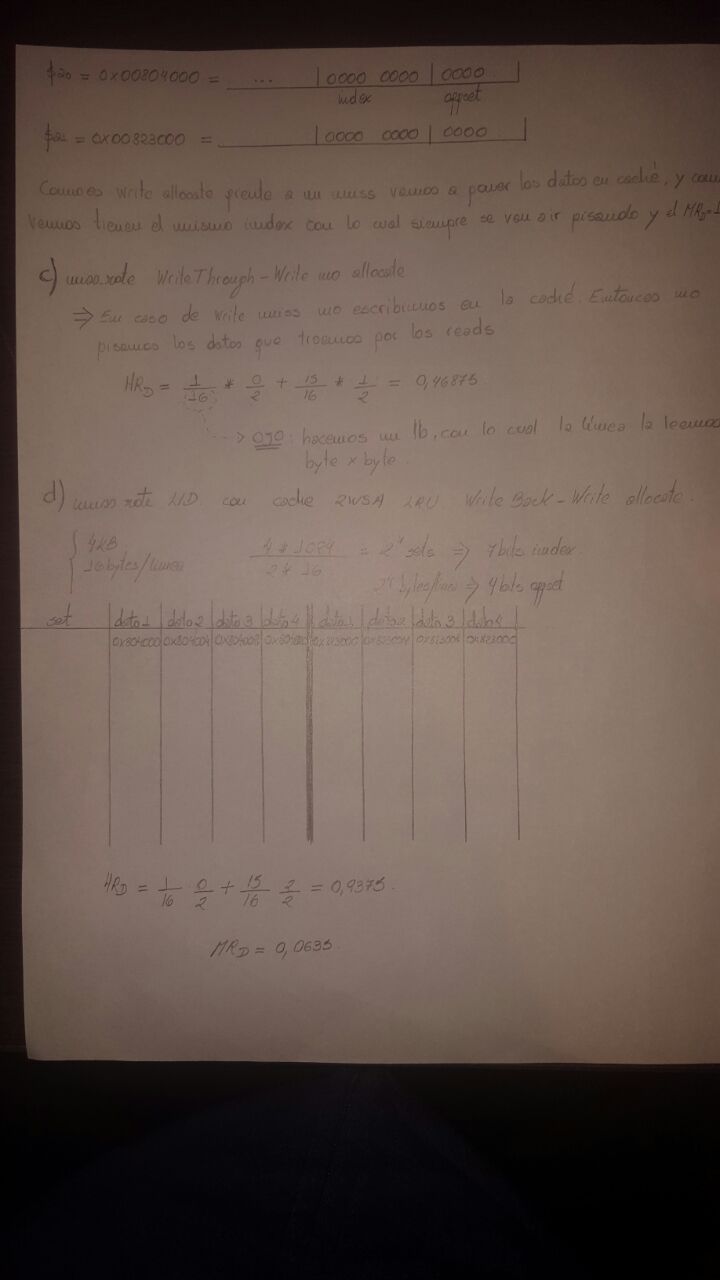 $20 = 0x00804000 = ... | 0000 0000 | 0000 |
index offset
$21 = 0x00823000 = | 0000 0000 | 0000 |
Como es write allocate frente a un miss vamos a poner los datos en caché, y como
vemos tienen el mismo index con lo cual siempre se van a ir pisando y el MRD=1
c) miss rate Write Through - Write no allocate
⇒ En caso de write miss no escribimos en la caché. Entonces no
pisamos los datos que traemos por los reads
HRD = 1/16 * 0/2 + 15/16 * 1/2 = 0,46875.
-> OJO: hacemos un lb, con lo cual la línea la leemos
byte x byte.
d) miss rate L1D con cache 2WSA LRU Write Back - Write allocate.
{ 4KB 4*1024/2*16 = 2^7 sets ⇒ 7 bits index.
16 bytes/linea 2^4 bytes/linea ⇒ 4 bits offset
set dato 1 dato 2 dato 3 dato 4 dato 1 dato 2 dato 3 dato 4
0x804000 0x804004 0x804008 0x823000
HRD = 1/16 0/2 + 15/16 2/2 = 0,9375.
MRD = 0,0635.